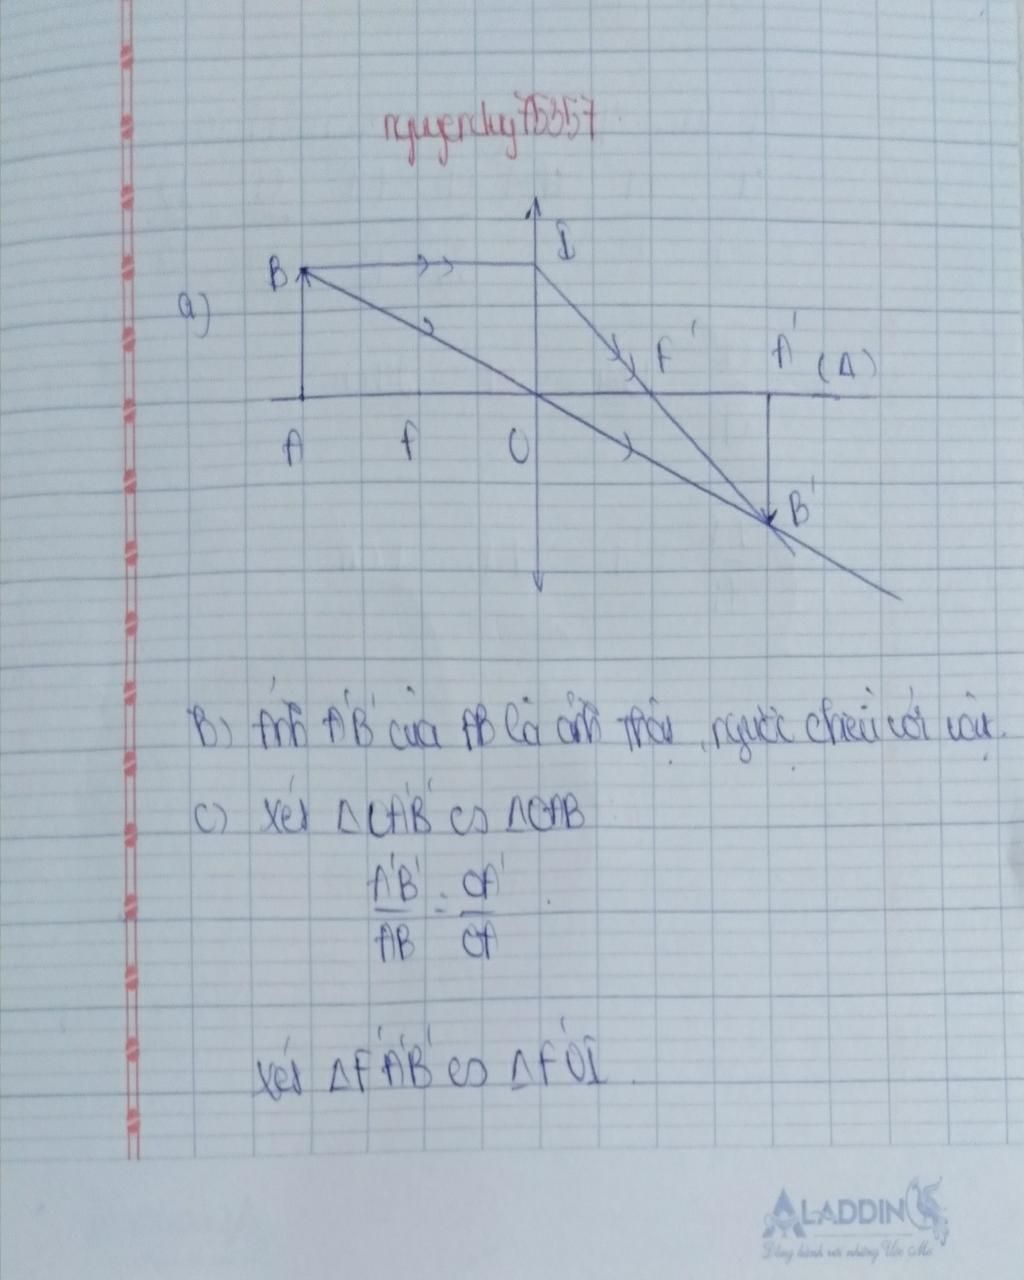 nguyenchy75357
I
B
a)
F' A' (Δ)
A F O
B'
B) Ảnh A'B' của AB là ảnh thật, ngược chiều với vật.
C) Xét ΔOA'B' ∽ ΔOAB
A'B' / AB = OA' / OA
Xét ΔF'A'B' ∽ ΔF'OI.
ALADDIN
Đồng hành với những Ước Mơ